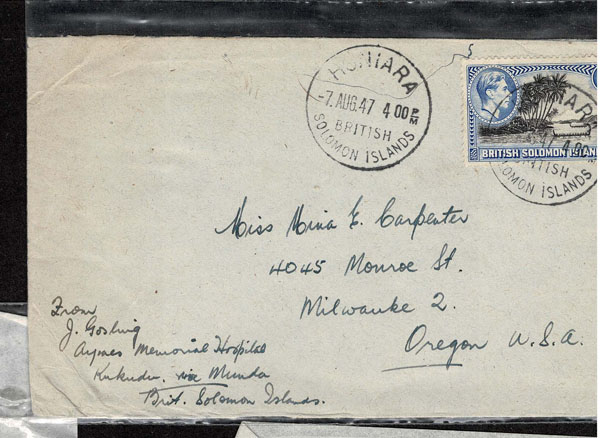 HONIARA
-7.AUG.47 4 00 PM
BRITISH
SOLOMON ISLANDS
BRITISH SOLOMON
47 4 00
SOLOMON ISLANDS
Miss Mina E. Carpenter
4045 Monroe St.
Milwauke 2.
Oregon U.S.A.
From
J. Gosling
Aymes Memorial Hospital
Kukudu, via Munda
Brit. Solomon Islands.